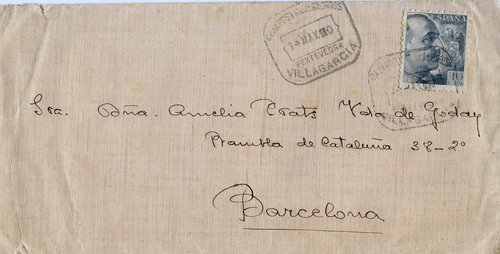 14 MAY.40
PONTEVEDRA
VILLAGARCIA
ESPAÑA
Sra. Dña. Amelia Prats Vda de Goday
Rambla de Cataluña 38-2º
Barcelona